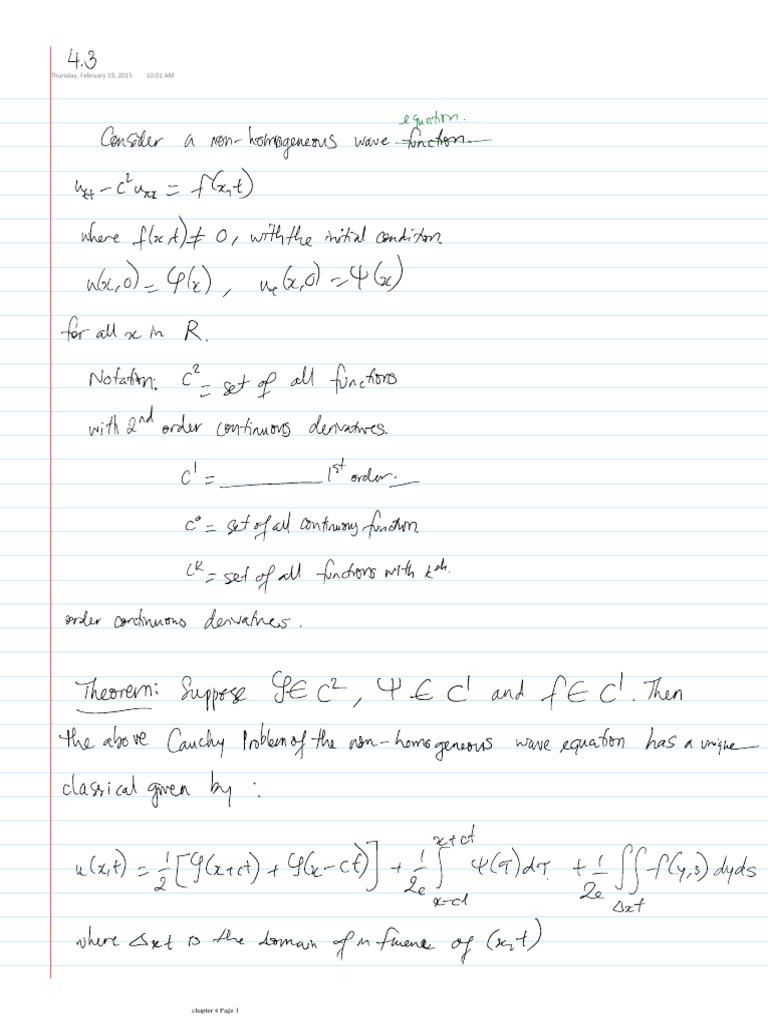 4.3
Thursday, February 19, 2015 10:01 AM
equation.
Consider a non-homogeneous wave function.
u_tt - c² u_xx = f(x,t)
where f(x,t) ≠ 0, with the initial condition
u(x,0) = φ(x), u_t(x,0) = ψ(x)
for all x in R.
Notation: C² = set of all functions
with 2nd order continuous derivatives.
C¹ = __________ 1st order. __
C⁰ = set of all continuous function.
C^k = set of all functions with kth.
order continuous derivatives.
Theorem: Suppose φ ∈ C², ψ ∈ C¹ and f ∈ C¹. Then
the above Cauchy Problem of the non-homogeneous wave equation has a unique
classical given by :
u(x,t) = 1/2 [φ(x+ct) + φ(x-ct)] + 1/2c ∫_{x-ct}^{x+ct} ψ(τ)dτ + 1/2c ∬_{Δxt} f(y,s) dyds
where Δxt is the domain of influence of (x,t)
chapter 4 Page 1